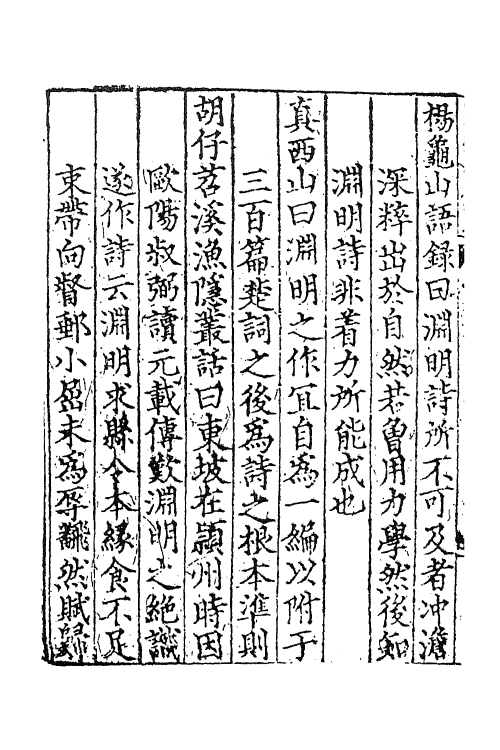 楊龜山語録曰淵明詩所不可及者冲澹
深粹出於自然若曽用力學然後知
淵明詩非着力所能成也
真西山曰淵明之作冝自為一編以附于
三百篇楚詞之後為詩之根本準則
胡仔苕溪漁隱叢話曰東坡在頴州時因
歐陽叔弼讀元載傳歎淵明之絶識
遂作詩云淵明求縣令本緣食不足
束帶向督郵小屈未為辱翻然賦歸